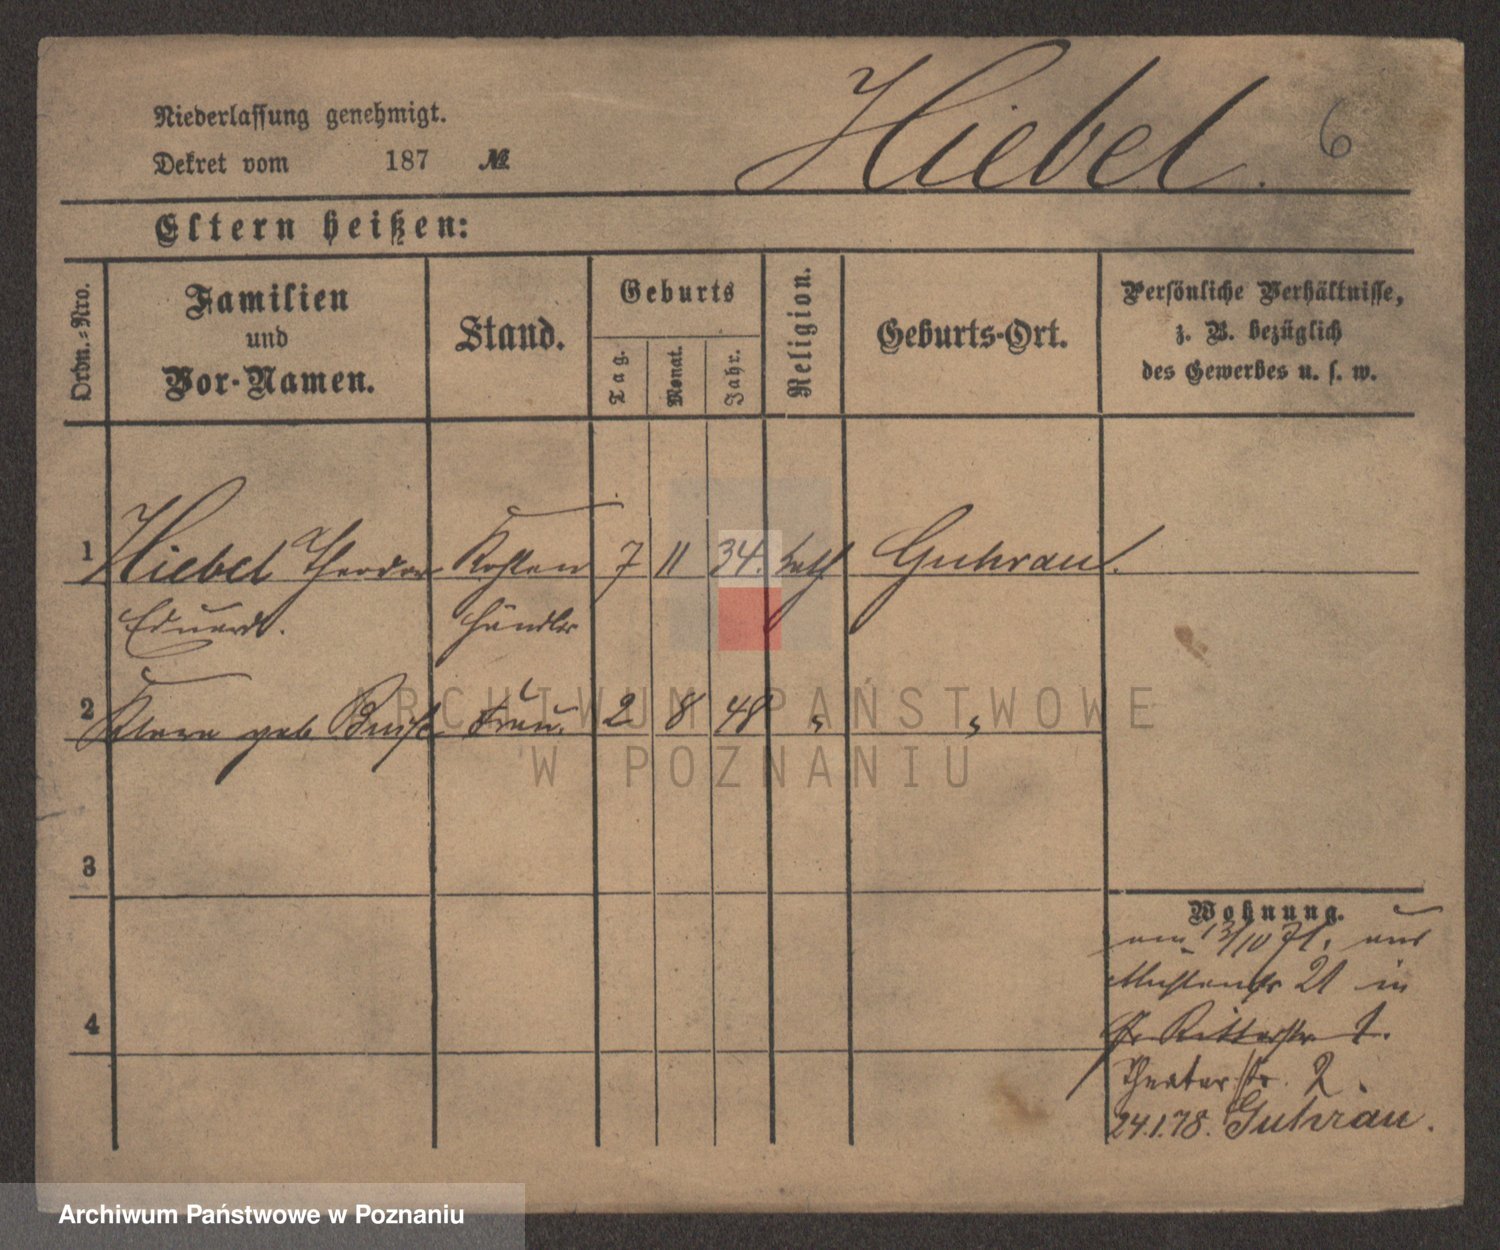 Niederlassung genehmigt.
Dekret vom 187 №
Hiebel. 6
Eltern heißen:
Ordn.-Nro.
Familien
und
Vor-Namen.
Stand.
Geburts
Tag.
Monat.
Jahr.
Religion.
Geburts-Ort.
Persönliche Verhältnisse,
z. B. bezüglich
des Gewerbes u. s. w.
1 Hiebel Theodor Kohlen 7 11 34. kath Guhrau.
Eduard. händler
2 geb Frau. 2 8 48 " "
ARCHIWUM PAŃSTWOWE
W POZNANIU
3
4
Wohnung.
am 13/10 71. aus
21 in
Gr Ritterstr 1.
Theaterstr. 2.
24.1.78. Guhrau.
Archiwum Państwowe w Poznaniu